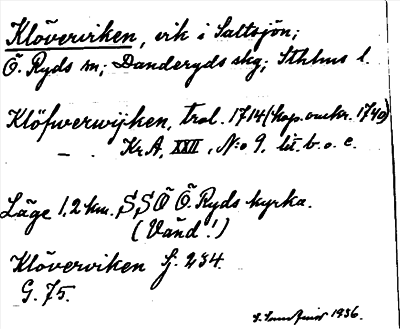 Klöverviken, vik i Saltsjön;
Ö. Ryds sn; Danderyds skg; Sthlms l.
Klöfwerwijken, trol. 1714 (kop. omkr. 1740)
— Kr.A, XXII, N:o 9, lit. b. o. c.
Läge 1,2 km. SSÖ Ö. Ryds kyrka.
(Vänd!)
Klöverviken Sj. 234.
G. 75.
1936.